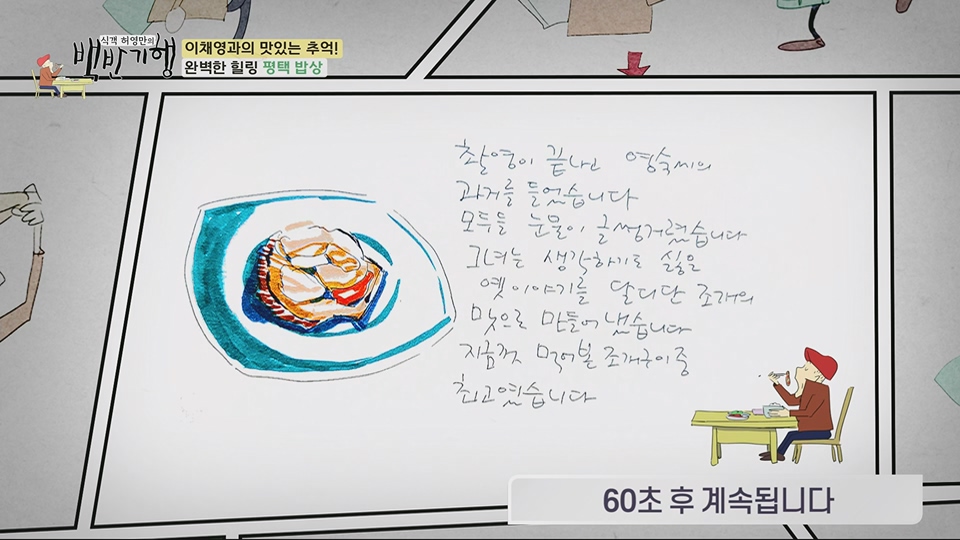 식객 허영만의
백반기행
이채영과의 맛있는 추억!
완벽한 힐링 평택 밥상
촬영이 끝나고 영숙씨의
과거를 들었습니다
모두들 눈물이 글썽거렸습니다
그녀는 생각하기도 싫을
옛이야기를 달디단 조개의
맛으로 만들어 냈습니다
지금껏 먹어본 조개구이중
최고였습니다
60초 후 계속됩니다